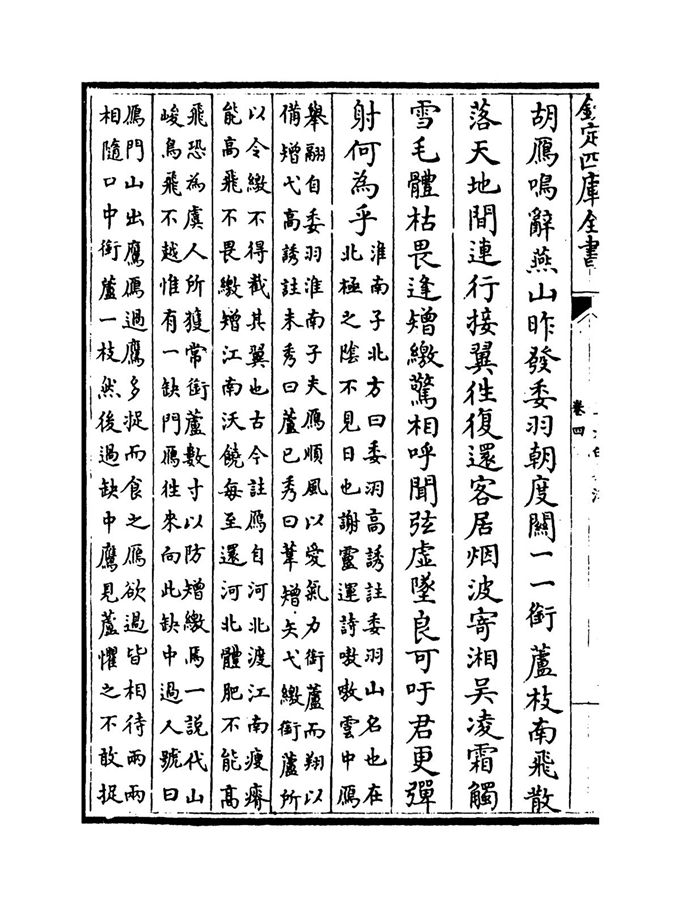 欽定四庫全書
卷四
胡鴈鳴辭燕山昨發委羽朝度關一一銜蘆枝南飛散
落天地間連行接翼往復還客居烟波寄湘吳凌霜觸
雪毛體枯畏逢矰繳驚相呼聞弦虛墜良可吁君更彈
射何為乎
淮南子北方曰委羽高誘註委羽山名也在
北極之陰不見日也謝靈運詩嗷嗷雲中鴈
舉翮自委羽淮南子夫鴈順風以愛氣力銜蘆而翔以
備矰弋高誘註未秀曰蘆已秀曰葦矰矢弋繳銜蘆所
以令繳不得截其翼也古今註鴈自河北渡江南瘦瘠
能高飛不畏繳矰江南沃饒每至還河北體肥不能高
飛恐為虞人所獲常銜蘆數寸以防矰繳焉一說代山
峻鳥飛不越惟有一缺門鴈往來向此缺中過人號曰
鴈門山出鷹鴈過鷹多捉而食之鴈欲過皆相待兩兩
相隨口中銜蘆一枝然後過缺中鷹見蘆懼之不敢捉